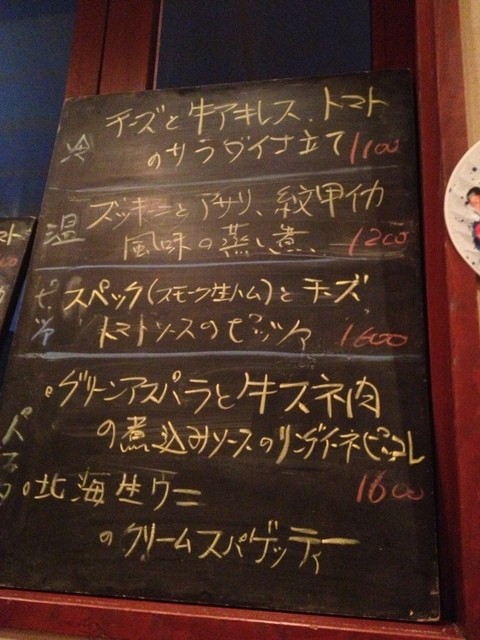 冷 チーズと牛アキレス、トマト
のサラダイナ立て 1100
温 ズッキーニとアサリ、紋甲イカ
風味の蒸し煮、 1200
ピッツァ スペック(スモーク生ハム)とチーズ
トマトソースのピッツァ 1600
パスタ
・グリーンアスパラと牛スネ肉
の煮込みソースのリングイーネピッコレ
・北海生ウニ 1600
のクリームスパゲッティー